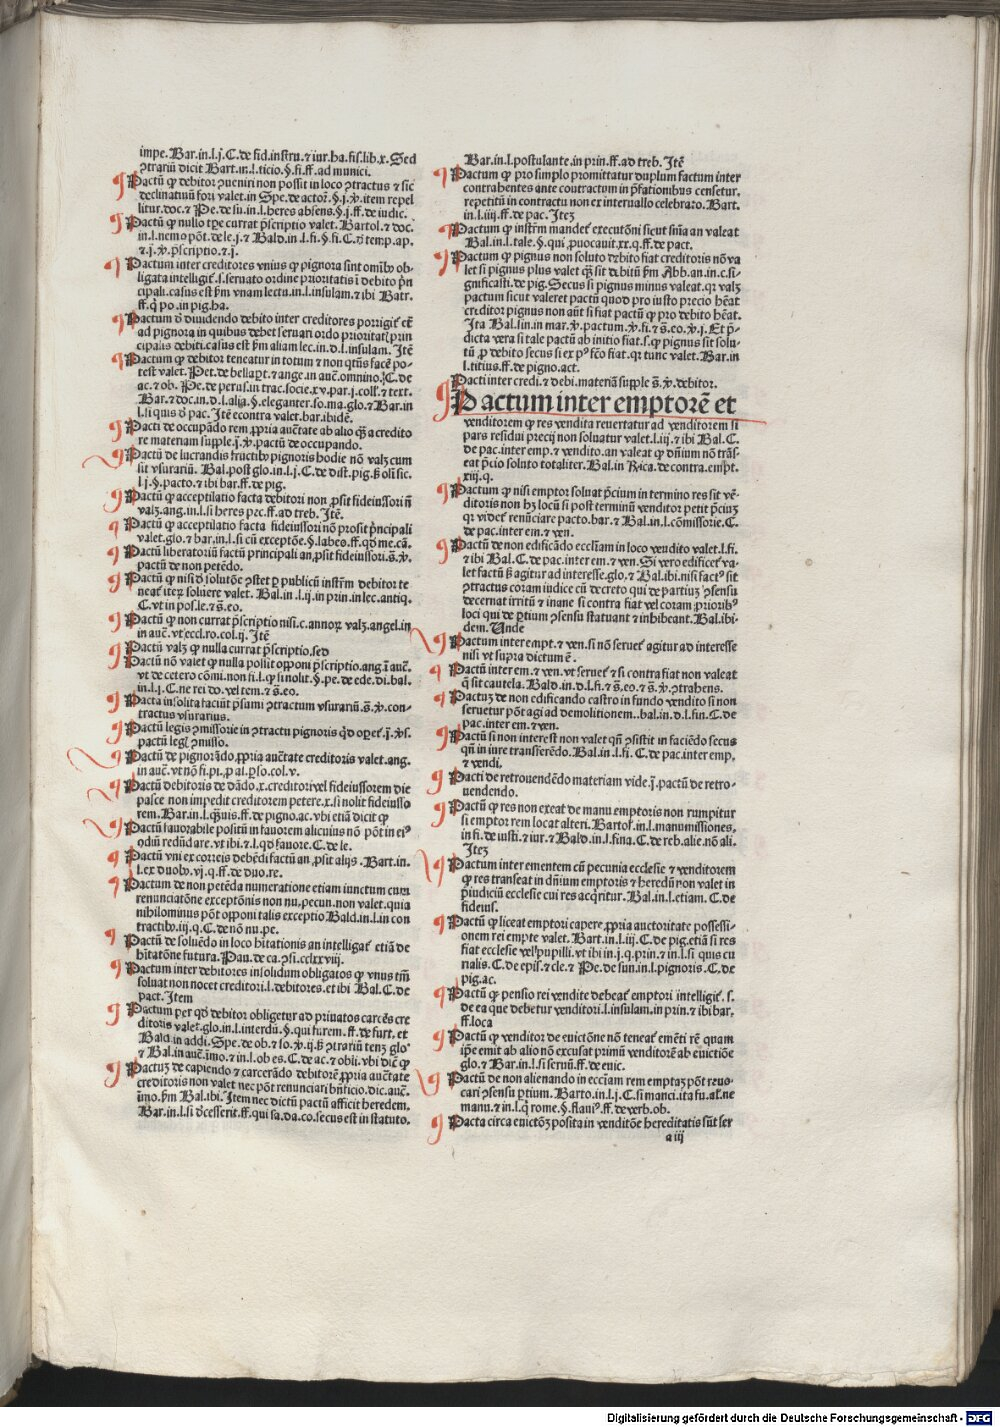 impe. Bar. in. l. j. C. de fid. instru. ⁊ iur. ha. fis. lib. x. Sed
ꝯtrariū dicit Bart. in. l. ticio. §. fi. ff. ad munici.
Pactū ꝙ debitor ꝯueniri non possit in loco ꝯtractus ⁊ sic
declinatiuū fori valet. in Spe. de actor. §. j. ꝟ. item repel
litur. doc. ⁊ Pe. de su. in. l. heres absens. §. j. ff. de iudic.
Pactū ꝙ nullo tꝑe currat p̄scriptio valet. Bartol. ⁊ doc.
in. l. nemo pōt. de le. j. ⁊ Bald. in. l. fi. §. fi. C. ꝺ temp. ap.
⁊. j. ꝟ. p̄scriptio. ⁊. j.
Pactum inter creditores vnius ꝙ pignora sint omībꝰ ob-
ligata intelligit᷑. s. seruato ordine prioritatis ī debito p̄n
cipali. casus est ẜm vnam lectu. in. l. insulam. ⁊ ibi Batr.
ff. ꝗ po. in pig. ha.
Pactum ꝺ diuidendo debito inter creditores porrigit᷑ et᷑
ad pignora in quibus debet seruari ordo prioritat᷑ prin
cipalis debiti. casus est ẜm aliam lec. in. d. l. insulam. Itē
Pactum ꝙ debitor teneatur in totum ⁊ non qtūs facē po-
test valet. Pet. de bellapt. ⁊ ange. in auc̄. omnino. C. de
ac. ⁊ ob. Pe. de perus. in trac. socie. xv. par. j. coll᷑. ⁊ text.
Bar. ⁊ doc. in. d. l. alia. §. eleganter. so. ma. glo. ⁊ Bar. in
l. si quis ꝺ pac. Itē econtra valet. bar. ibidē.
Pacti de occupādo rem ꝓpria auc̄tate ab alio ꝙ̄ a credito
re materiam supple. j. ꝟ. pactū de occupando.
Pactū de lucrandis fructibꝰ pignoris hodie nō valꝫ cum
sit vsurariū. Bal. post glo. in. l. j. C. de dist. pig. ꝫ olī sic.
l. j. §. pacto. ⁊ ibi bar. ff. de pig.
Pactū ꝙ acceptilatio facta debitori non ꝓsit fideiussori n̄
valꝫ. ang. in. l. si heres pre. ff. ad treb. Itē.
Pactū ꝙ acceptilatio facta fideiussori nō prosit p̄ncipali
valet. glo. ⁊ bar. in. l. si cū exceptōe. §. labeo. ff. qd me. cā.
Pactū liberatoriū factū principali an ꝓsit fideiussori. s̄. ꝟ.
pactū de non petēdo.
Pactū ꝙ nisi ꝺ solutōe ꝯstet ꝑ publicū instr̄m debitor te
neat᷑ iterꝰ soluere valet. Bal. in. l. ij. in prin. in lec. antiq.
C. vt in pos. le. ⁊ s̄. eo.
Pactū ꝙ non currat p̄scriptio nisi. c. annorꝝ valꝫ. angel. in
in auc̄. vt eccl. ro. col. ij. Itē
Pactū valꝫ ꝙ nulla currat p̄scriptio. sed
Pactū nō valet ꝙ nulla possit opponi p̄scriptio. ang. ī auc̄.
vt de cetero cōmi. non fi. l. ꝙ si nolit. §. pe. de ede. di. bal.
in. l. j. C. ne rei do. vel tem. ⁊ s̄. eo.
Pacta insolita faciūt p̄sumi ꝯtractum vsurariū. s̄. ꝟ. con-
tractus vsurarius.
Pactū legis ꝯmissorie in ꝯtractu pignoris qd opet᷑. j. ꝟ. s.
pactū legꝫ ꝯmisso.
Pactū de pignorādo ꝓpria auc̄tate creditoris valet. ang.
in auc̄. vt nō fi. pi. ꝑ al. ꝑso. col. v.
Pactū debitoris de dādo. x. creditori vel fideiussorem die
pasce non impedit creditorem petere. x. si nolit fideiusso
rem. Bar. in. l. ꝙuis. ff. de pigno. ac. vbi etiā dicit ꝙ
Pactū fauorabile positū in fauorem alicuius nō pōt in eiꝰ
odiū redūdare. vt ibi. ⁊. l. qd fauore. C. de le.
Pactū vni ex correis debēdi factū an ꝓsit alijs. Bart. in.
l. ex duobꝰ. vj. q. ff. de duo. re.
Pactum de non petēda numeratione etiam iunctum cum
renunciatōne exceptōnis non nu. pecun. non valet. quia
nihilominus pōt opponi talis exceptio Bald. in. l. in con
tractibꝰ. iij. q. C. de nō nu. pe.
Pactū de soluēdo in loco hitationis an intelligat᷑ etiā de
hitatōne futura. Pau. de ca. ꝯsi. cclxxviij.
Pactum inter debitores insolidum obligatos ꝙ vnus tm̄
soluat non nocet creditori. l. debitores. et ibi Bal. C. de
pact. Item
Pactum per qd debitor obligetur ad priuatos carcēs cre
ditoris valet. glo. in. l. interdū. §. qui furem. ff. de furt. et
Bald. in addi. Spe. de ob. ⁊ so. ꝟ. ij. ꝫ ꝯtrariū tenꝫ glo
⁊ Bal. in auc̄. īmo. ⁊ in. l. ob es. C. de ac. ⁊ obli. vbi dic̄ ꝙ
Pactuꝫ de capiendo ⁊ carcerādo debitorē ꝓpria auc̄tate
creditoris non valet nec pōt renunciari bn̄ficio. dic. auc̄.
īmo. ẜm Bal. ibi. Item nec dictū pactū afficit heredem.
Bar. in. l. si ꝺcesserit. ff. qui sa. da. co. secus est in statuto.
Bar. in. l. postulante. in prin. ff. ad treb. Itē
Pactum ꝙ pro simplo promittatur duplum factum inter
contrahentes ante contractum in p̄fationibus censetur.
repetitū in contractu non ex interuallo celebrato. Bart.
in. l. iiij. ff. de pac. Iteꝫ
Pactum ꝙ instr̄m mandet᷑ executōni sicut sn̄ia an valeat
Bal. in. l. tale. §. qui ꝓuocauit. xx. q. ff. de pact.
Pactum ꝙ pignus non soluto debito fiat creditoris nō va
let si pignus plus valet ꝙ̄ sit debitū ẜm Abb. an. in. c. si-
gnificasti. de pig. Secus si pignus minus valeat. qr valꝫ
pactum sicut valeret pactū quod pro iusto precio hēat
creditor pignus non aūt si fiat pactū ꝙ pro debito hēat.
Ita Bal. sin. in mar. ꝟ. pactum. ꝟ. fi. ⁊ s̄. eo. ꝟ. j. Et p̄-
dicta vera si tale pactū ab initio fiat. s. ꝙ pignus sit solu-
tū ꝓ debito secus si ex pꝰ fc̄o fiat. qr tunc valet. Bar. in
l. titius. ff. de pigno. act.
Pacti inter credi. ⁊ debi. materiā supple s̄. ꝟ. debitor.
Pactum inter emptorē et
venditorem ꝙ res vendita reuertatur ad venditorem si
pars residui precij non soluatur valet. l. iij. ⁊ ibi Bal. C.
de pac. inter emp. ⁊ vendito. an valeat ꝙ dn̄ium nō trās-
eat p̄cio soluto totaliter. Bal. in Rica. de contra. empt.
xiij. q.
Pactum ꝙ nisi emptor soluat p̄cium in termino res sit vē-
ditoris non hꝫ locū si post terminū venditor petit p̄ciuꝫ
qr videt᷑ renūciare pacto. bar. ⁊ Bal. in. l. cōmissorie. C.
de pac. inter em. ⁊ ven.
Pactū de non edificādo eccl̄iam in loco vendito valet. l. fi.
⁊ ibi Bal. C. de pac. inter em. ⁊ ven. Si vero edificet᷑ va-
let factū ꝫ agitur ad interesse. glo. ⁊ Bal. ibi. nisi factꝰ sit
ꝯtractus coram iudice cū decreto qui de partiuꝫ ꝯsensu
decernat irritū ⁊ inane si contra fiat vel coram ꝓrioribꝰ
loci qui de ꝑtium ꝯsensu statuant ⁊ inhibeant. Bal. ibi-
dem. Unde
Pactum inter empt. ⁊ ven. si nō seruet᷑ agitur ad interesse
nisi vt supra dictum ē.
Pactū inter em. ⁊ ven. vt seruet᷑ ⁊ si contra fiat non valeat
ꝙ sit cautela. Bald. in. d. l. fi. ⁊ s̄. eo. ⁊ s̄. ꝟ. ꝯtrahens.
Pactuꝫ de non edificando castro in fundo vendito si non
seruetur pōt agi ad demolitionem. bal. in. d. l. fin. C. de
pac. inter em. ⁊ ven.
Pactū si non interest non valet qn̄ ꝯsistit in faciēdo secus
qn̄ in iure transferēdo. Bal. in. l. fi. C. de pac. inter emp.
⁊ vendi.
Pacti de retrouendēdo materiam vide. j. pactū de retro-
uendendo.
Pactū ꝙ res non exeat de manu emptoris non rumpitur
si emptor rem locat alteri. Bartol᷑. in. l. manumissiones.
in fi. de iusti. ⁊ iur. ⁊ Bald. in. l. fina. C. de reb. alie. nō ali.
Iteꝫ
Pactum inter ementem cū pecunia ecclesie ⁊ venditorem
ꝙ res transeat in dn̄ium emptoris ⁊ heredū non valet in
p̄iudiciū ecclesie cui res acq̄ritur. Bal. in. l. etiam. C. de
fideius.
Pactū ꝙ liceat emptori capere ꝓpria auctoritate possessi-
onem rei empte valet. Bart. in. l. iij. C. de pig. etiā si res
fiat ecclesie vel pupilli. vt ibi in. j. q. prin. ⁊ in. l. si quis cu
rialis. C. de epis. ⁊ cle. ⁊ Pe. de sun. in. l. pignoris. C. de
pig. ac.
Pactū ꝙ pensio rei vendite debeat᷑ emptori intelligit᷑. s.
de ea que debetur venditori. l. insulam. in prin. ⁊ ibi bar.
ff. loca
Pactū ꝙ venditor de euictōne nō teneat᷑ emēti rē quam
ip̄e emit ab alio nō excusat primū venditorē ab euictiōe
glo. ⁊ Bar. in. l. si seruū. ff. de euic.
Pactū de non alienando in eccl̄iam rem emptaꝫ pōt reuo-
cari ꝯsensu ꝑtium. Barto. in. l. j. C. si manci. ita fu. al. ne
manu. ⁊ in. l. ꝗ rome. §. flauiꝰ. ff. de verb. ob.
Pacta circa euictōꝫ posita in venditōe hereditatis sūt ser
a iij
Digitalisierung gefördert durch die Deutsche Forschungsgemeinschaft - DFG